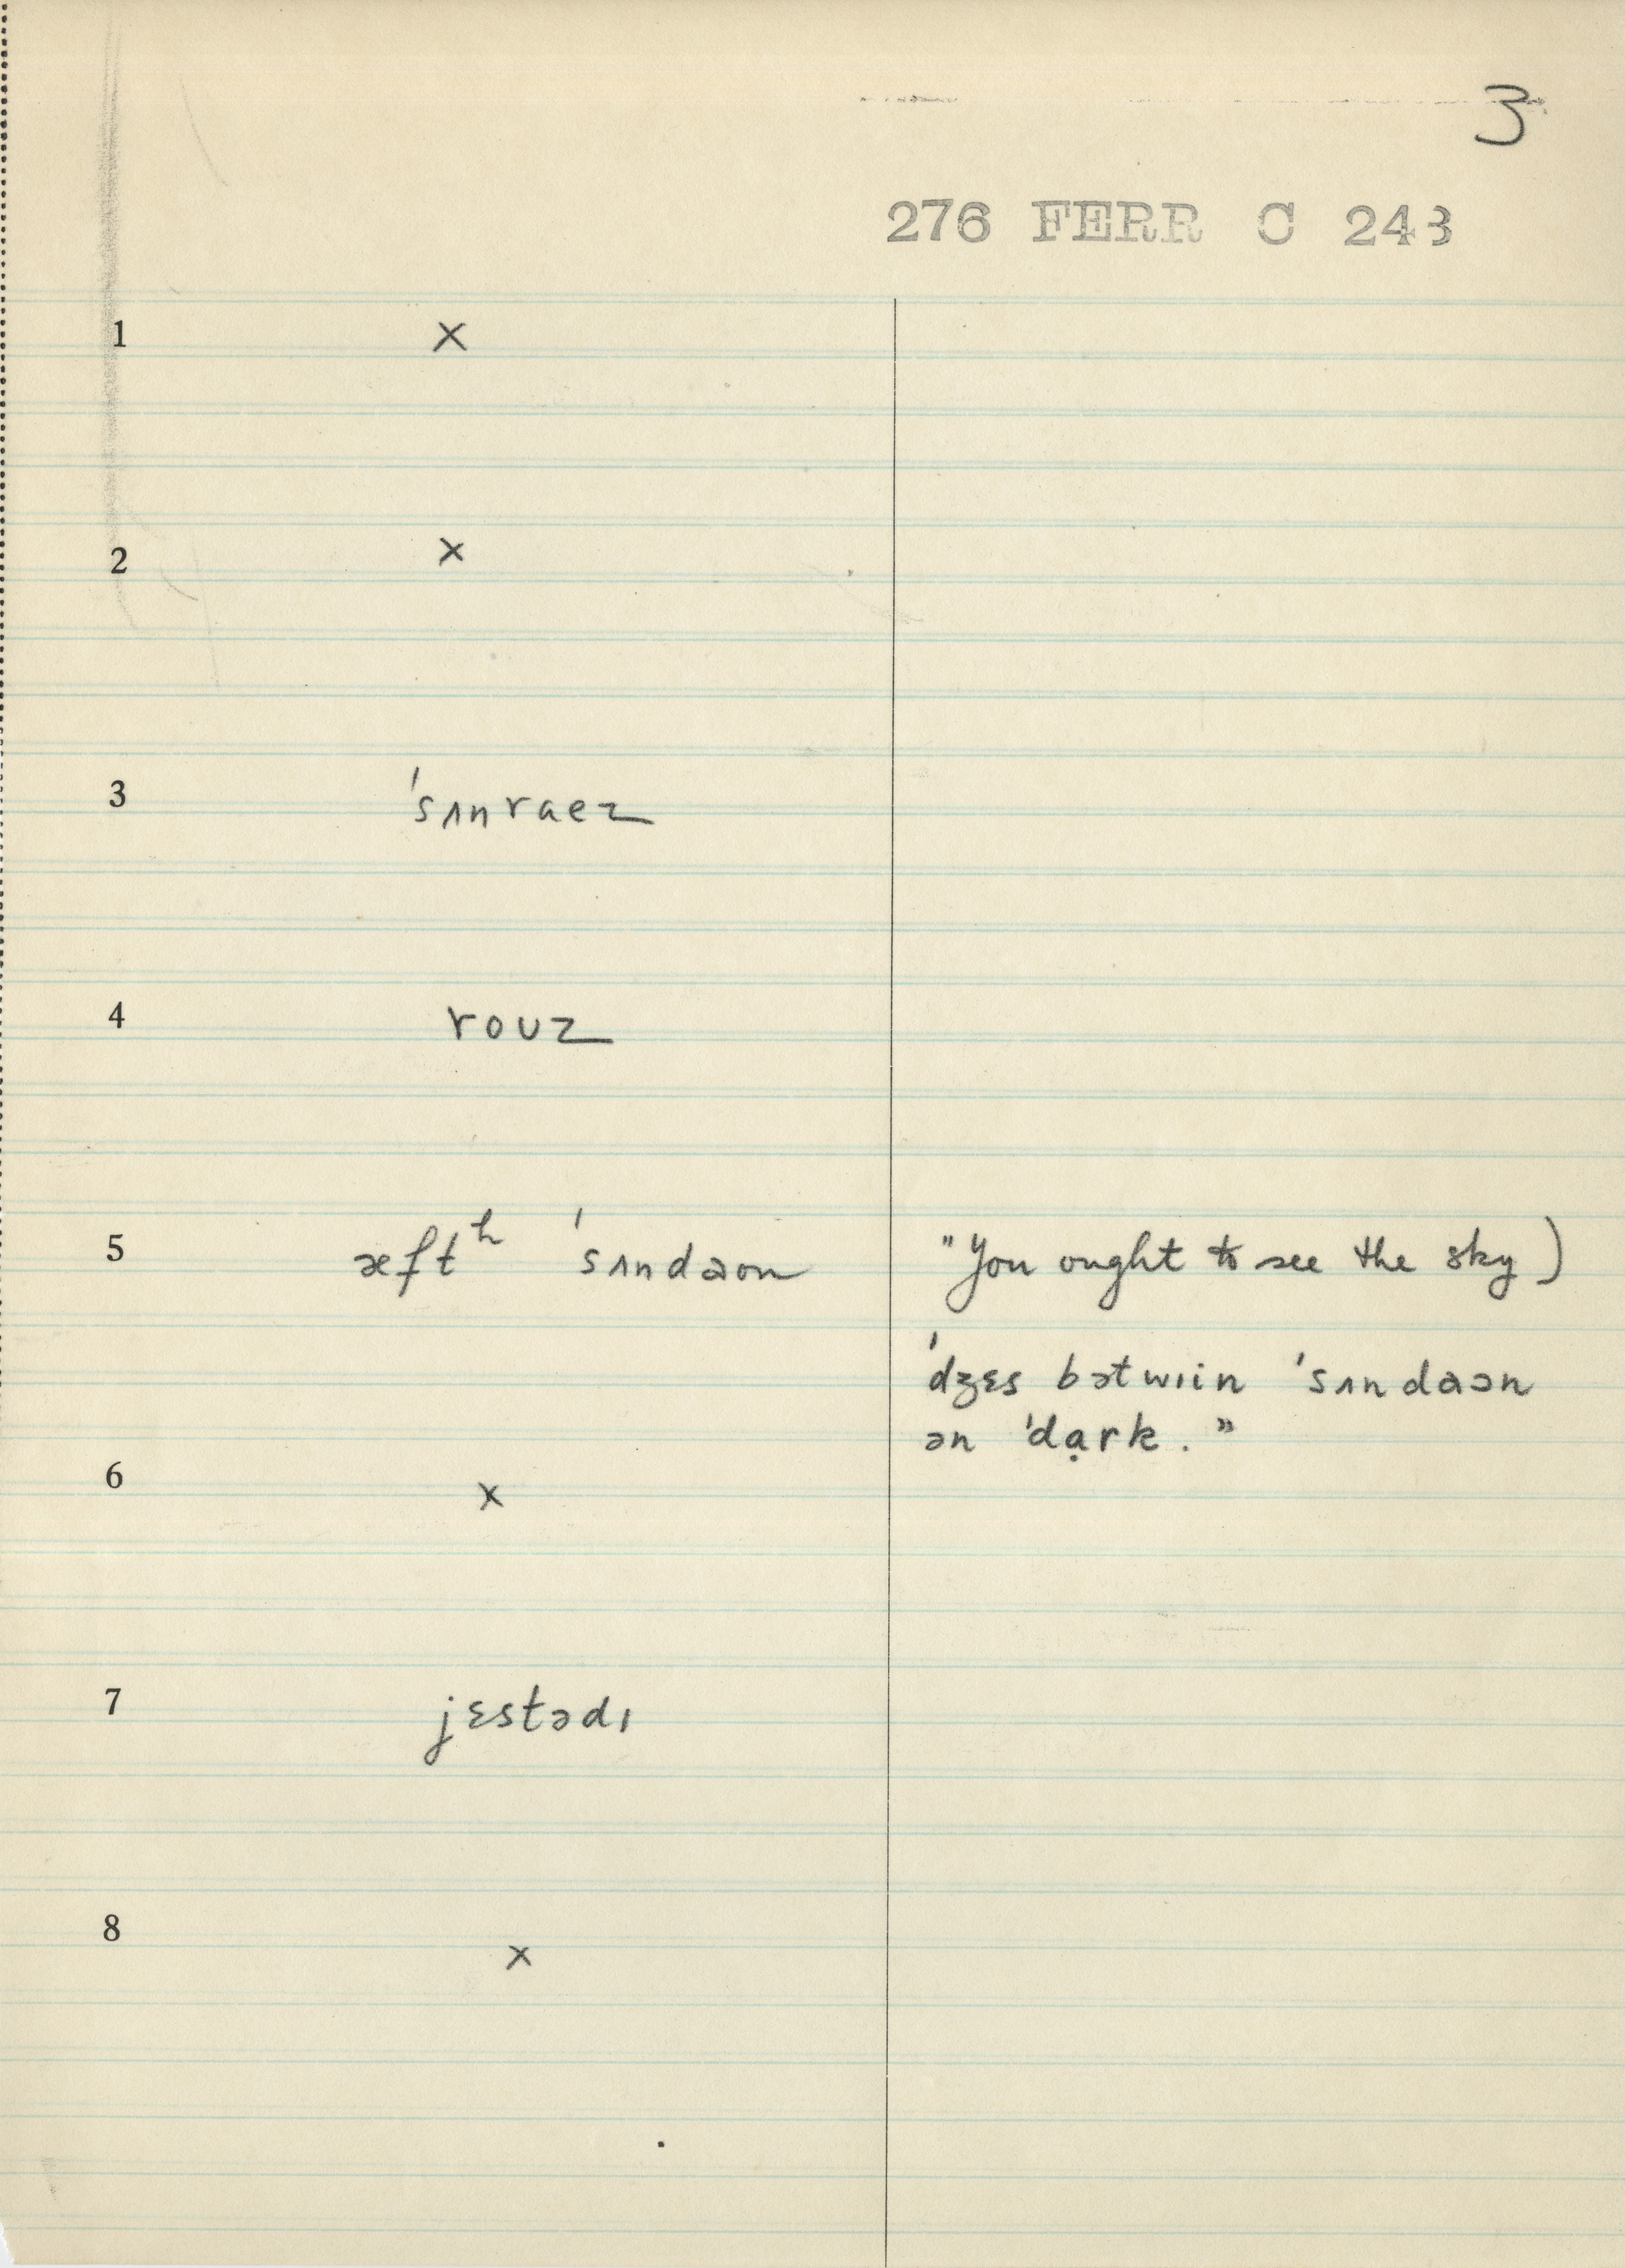 3
276 FERR C 243
1 ×
2 ×
3 ˈsʌnraez
4 roʊz
5 æftʰ ˈsʌndaon "You ought to see the sky)
ˈdʒɛs bətwɪin ˈsʌndaɔn
ən ˈdạrk."
6 ×
7 jɛstədɪ
8 ×